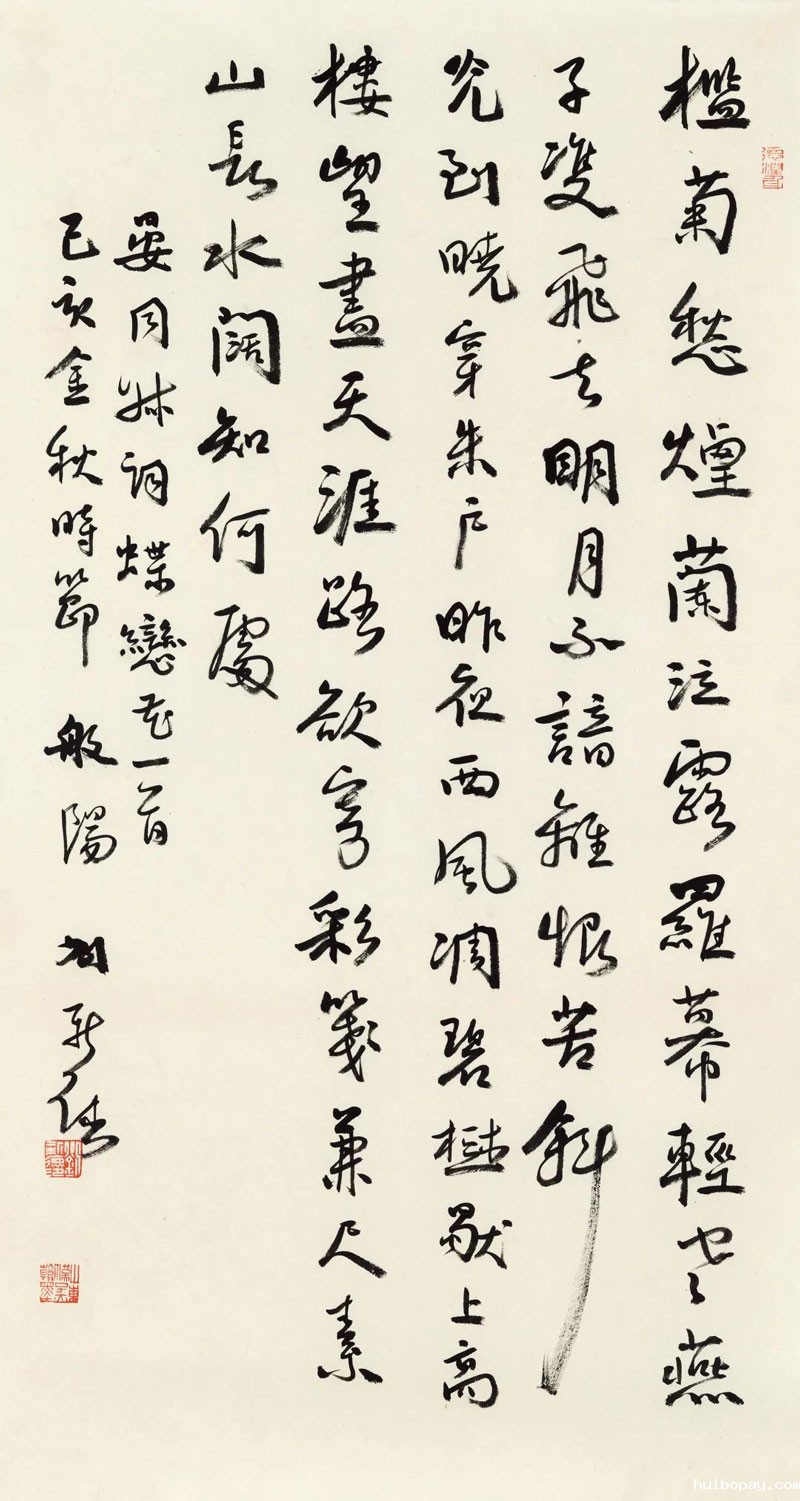 檻菊愁煙蘭泣露羅幕輕寒燕
子雙飛去明月不諳離恨苦斜
光到曉穿朱戶昨夜西風凋碧樹獨上高
樓望盡天涯路欲寄彩箋兼尺素
山長水闊知何處
晏同叔詞蝶戀花一首
己亥金秋時節 般陽 刘新
huibopay.com